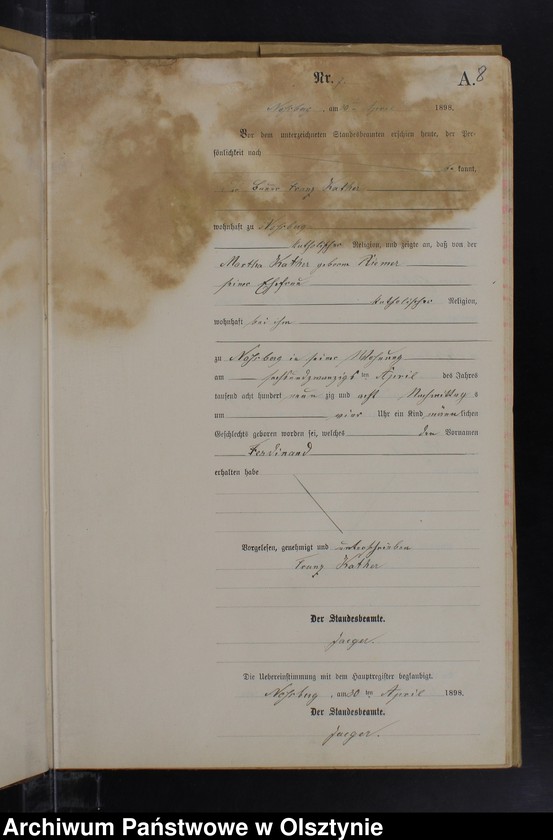 Nr.
A. 8
am 30 April 1898.
Vor dem unterzeichneten Standesbeamten erschien heute, der Per-
sönlichkeit nach
kannt,
Franz Kather
wohnhaft zu Nossberg
katholischer Religion, und zeigte an, daß von der
Martha Kather geborene Riemer
seine Ehefrau
katholischer Religion,
wohnhaft bei ihm
zu Nossberg in seine Wohnung
am sechsundzwanzigsten April des Jahres
tausend acht hundert neunzig und acht Nachmittags
um vier Uhr ein Kind männlichen
Geschlechts geboren worden sei, welches den Vornamen
Ferdinand
erhalten habe
Vorgelesen, genehmigt und unterschrieben
Franz Kather
Der Standesbeamte.
Jaeger.
Die Uebereinstimmung mit dem Hauptregister beglaubigt.
Nossberg, am 30 ten April 1898.
Der Standesbeamte.
Jaeger.
Archiwum Państwowe w Olsztynie